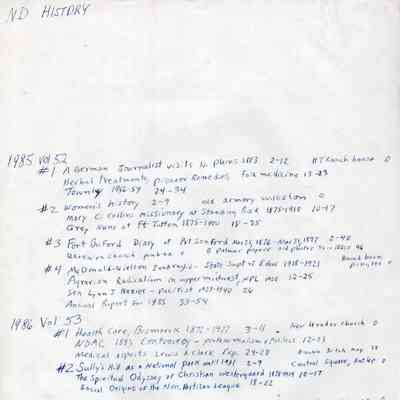 ND HISTORY
1985 Vol 52
#1 A German Journalist visits N. plains 1883 2-12 HT Ranch house 0
Herbal Treatments, pioneer Remedies Folk medicine 13-23
Townley 1956-59 24-34
#2 Women's history 2-9 old armory 0
Mary C. Collins Missionary at Standing Rock 1875-1910 10-17
Grey Nuns at Ft Totten 1875-1900 18-25
#3 Fort Buford Diary of Pvt Sanford 1876-1877 2-40
Ukrainian church 0 Palmer papers old photos
#4 McDonald-Nielson State Supt of Educ 1918-1921 Round barn
Agrarian Radicalism in upper midwest, NPL 12-25
Sen Lynn J. Frazier - Pacifist 1923-1940 26
Annual Report for 1985 33-54
1986 Vol 53
#1 Health Care, Bismarck 1872-1917 3-11 New church 0
NDAC 1893 Controversy - paternalism & politics 12-23
Medical aspects Lewis & Clark Exp. 24-28
#2 Sully's Hill as a National park until 1931 2-9 Central Square, 0
The Spiritual Odyssey of Christian Westergaard 10-17
Social Origins of the Non. Partisan League 18-22